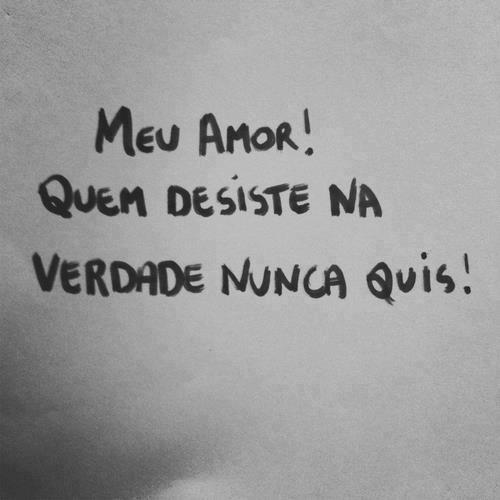 MEU AMOR!
QUEM DESISTE NA
VERDADE NUNCA QUIS!